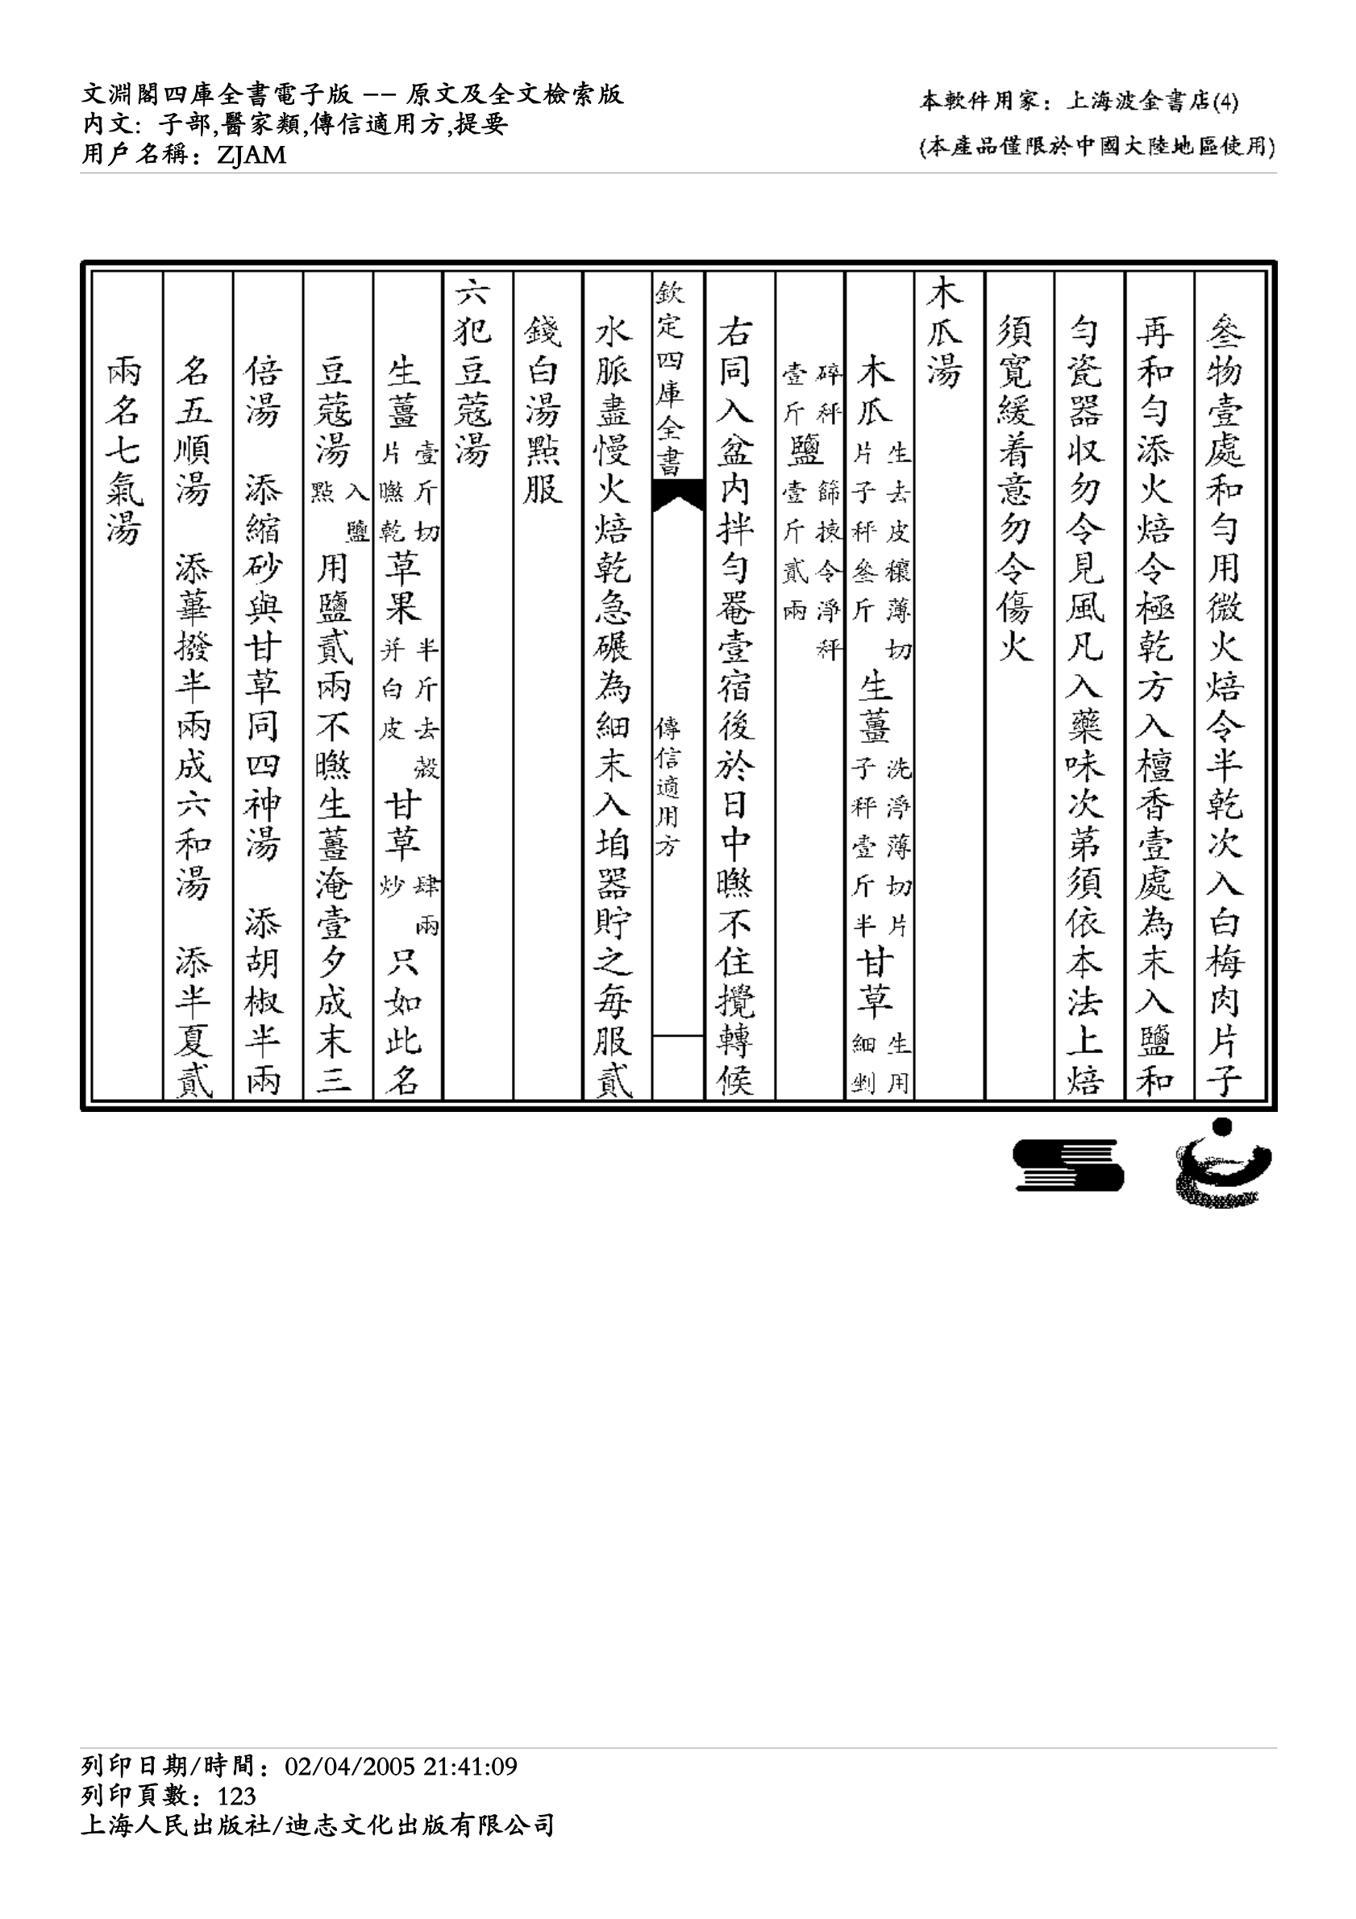 文淵閣四庫全書電子版 -- 原文及全文檢索版
内文: 子部,醫家類,傳信適用方,提要
用戶名稱: ZJAM
本軟件用家: 上海波金書店(4)
(本產品僅限於中國大陸地區使用)
叁物壹處和勻用微火焙令半乾次入白梅肉片子
再和勻添火焙令極乾方入檀香壹處為末入鹽和
勻瓷器収勿令見風凡入藥味次第須依本法上焙
須寬緩着意勿令傷火
木瓜湯
木瓜生去皮穰薄切片子秤叁斤生薑洗淨薄切片子秤壹斤半甘草生用細剉
碎秤壹斤鹽篩揀令淨秤壹斤貳兩
右同入盆内拌勻罨壹宿後於日中㬠不住攪轉候
欽定四庫全書
傳信適用方
水脈盡慢火焙乾急碾為細末入垍器貯之每服貳
錢白湯點服
六犯豆蔻湯
生薑壹斤切片㬠乾草果半斤去殼并白皮甘草肆兩炒只如此名
豆蔻湯入鹽點用鹽貳兩不㬠生薑淹壹夕成末三
倍湯 添縮砂與甘草同四神湯 添胡椒半兩
名五順湯 添蓽撥半兩成六和湯 添半夏貳
兩名七氣湯
列印日期/時間: 02/04/2005 21:41:09
列印頁數: 123
上海人民出版社/迪志文化出版有限公司